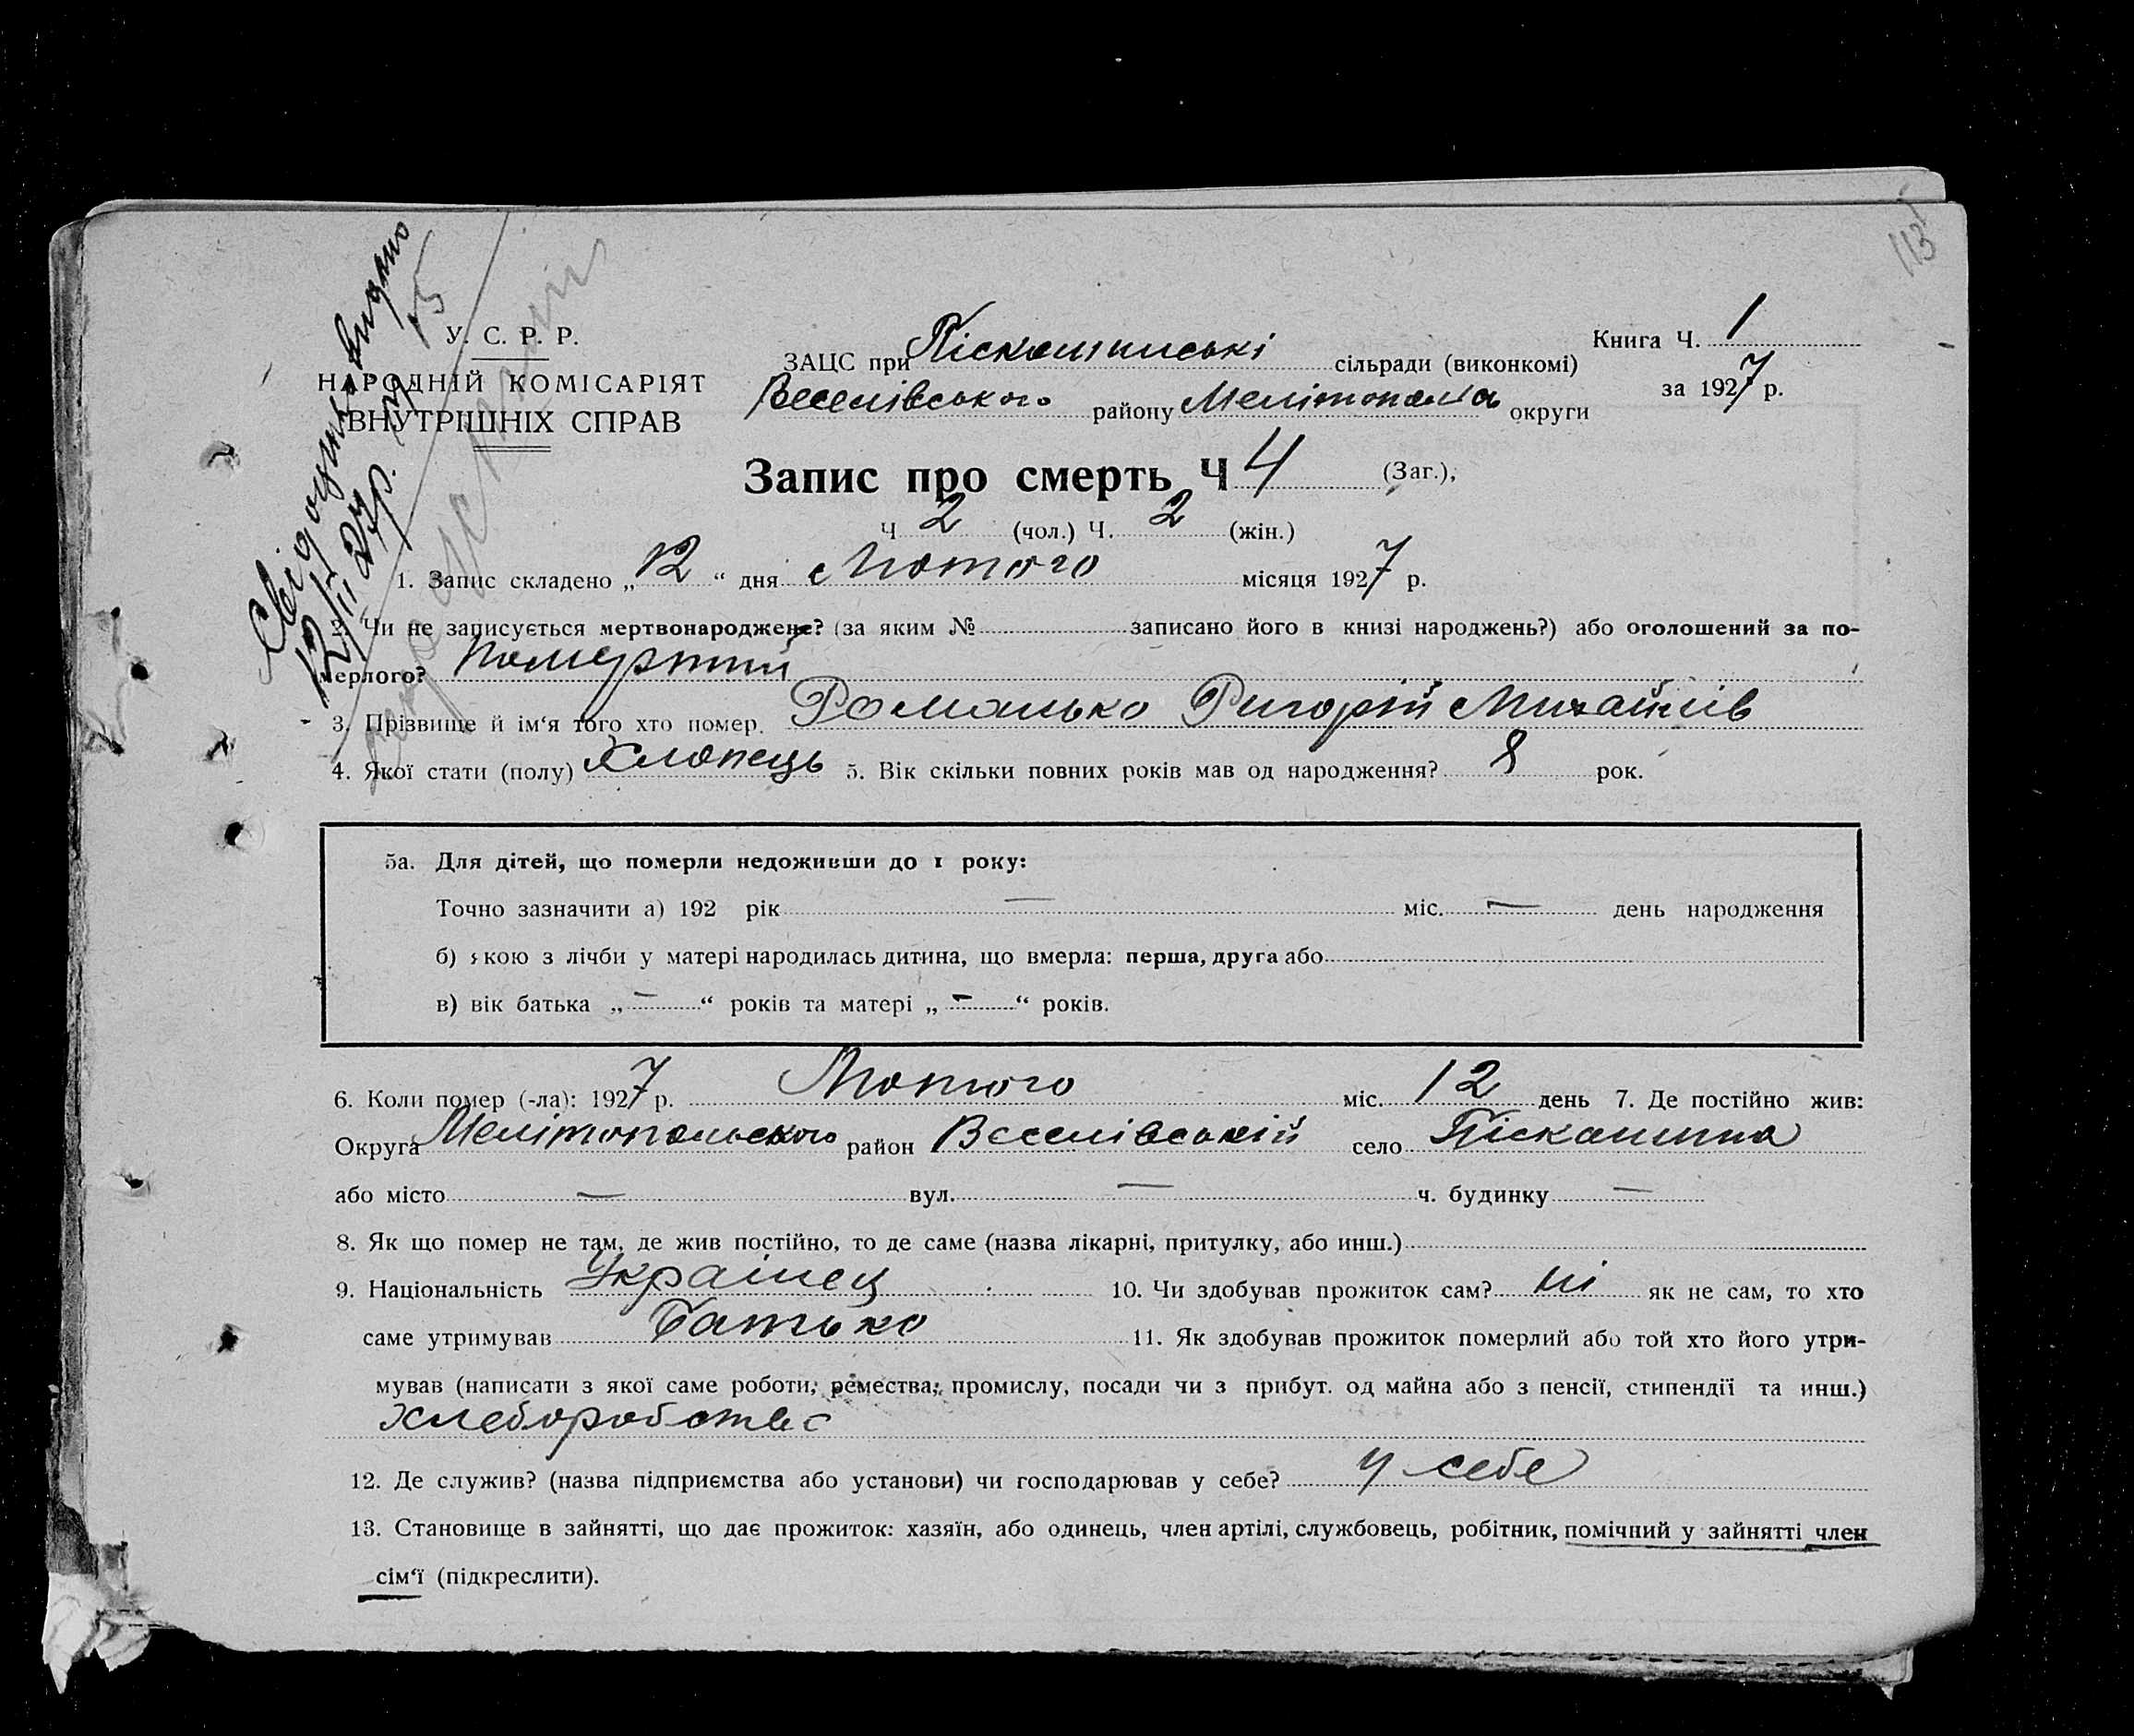 113
Свідоцтво видано
12/II 27р. № 5
У. С. Р. Р.
НАРОДНІЙ КОМІСАРІЯТ
ВНУТРІШНІХ СПРАВ
ЗАЦС при Піскошинські сільради (виконкомі)
Веселівського району Мелітополь округи
Книга Ч. 1
за 1927 р.
Запис про смерть Ч 4 (Заг.),
Ч 2 (чол.) Ч. 2 (жін.)
1. Запис складено „ 12 “ дня Лютого місяця 1927 р.
2. Чи не записується мертвонароджене? (за яким № записано його в книзі народжень?) або оголошений за по-
мерлого? померший
3. Прізвище й ім‘я того хто помер. Романько Григорій Михайлів
4. Якої стати (полу) Хлопець 5. Вік скільки повних років мав од народження? 8 рок.
5а. Для дітей, що померли недоживши до 1 року:
Точно зазначити а) 192 рік — міс. — день народження
б) якою з лічби у матері народилась дитина, що вмерла: перша, друга або
в) вік батька „ — “ років та матері „ — “ років.
6. Коли помер (-ла): 1927 р. Лютого міс. 12 день 7. Де постійно жив:
Округа Мелітопольского район Веселівській село Піскошина
або місто — вул. — ч. будинку —
8. Як що помер не там, де жив постійно, то де саме (назва лікарні, притулку, або инш.)
9. Національність Українец 10. Чи здобував прожиток сам? ні як не сам, то хто
саме утримував Батько 11. Як здобував прожиток померлий або той хто його утри-
мував (написати з якої саме роботи, ремества, промислу, посади чи з прибут. од майна або з пенсії, стипендії та инш.)
хлеборобство
12. Де служив? (назва підприємства або установи) чи господарював у себе? у себе
13. Становище в зайнятті, що дає прожиток: хазяїн, або одинець, член артілі, службовець, робітник, помічний у зайнятті член
сім‘ї (підкреслити).